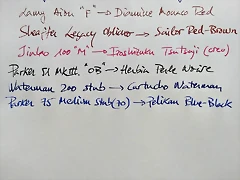 Lamy Aion "F" → Diamine Monaco Red
Sheaffer Legacy Oblique → Sailor Red-Brown
Jinhao 100 "M" → Iroshizuku Tsutsuji (creo)
Parker 51 MKIII. "OB" → Herbin Perle Noire
Waterman 200 stub → Cartucho Waterman
Parker 75 Medium Stub (70) → Pelikan Blue-Black